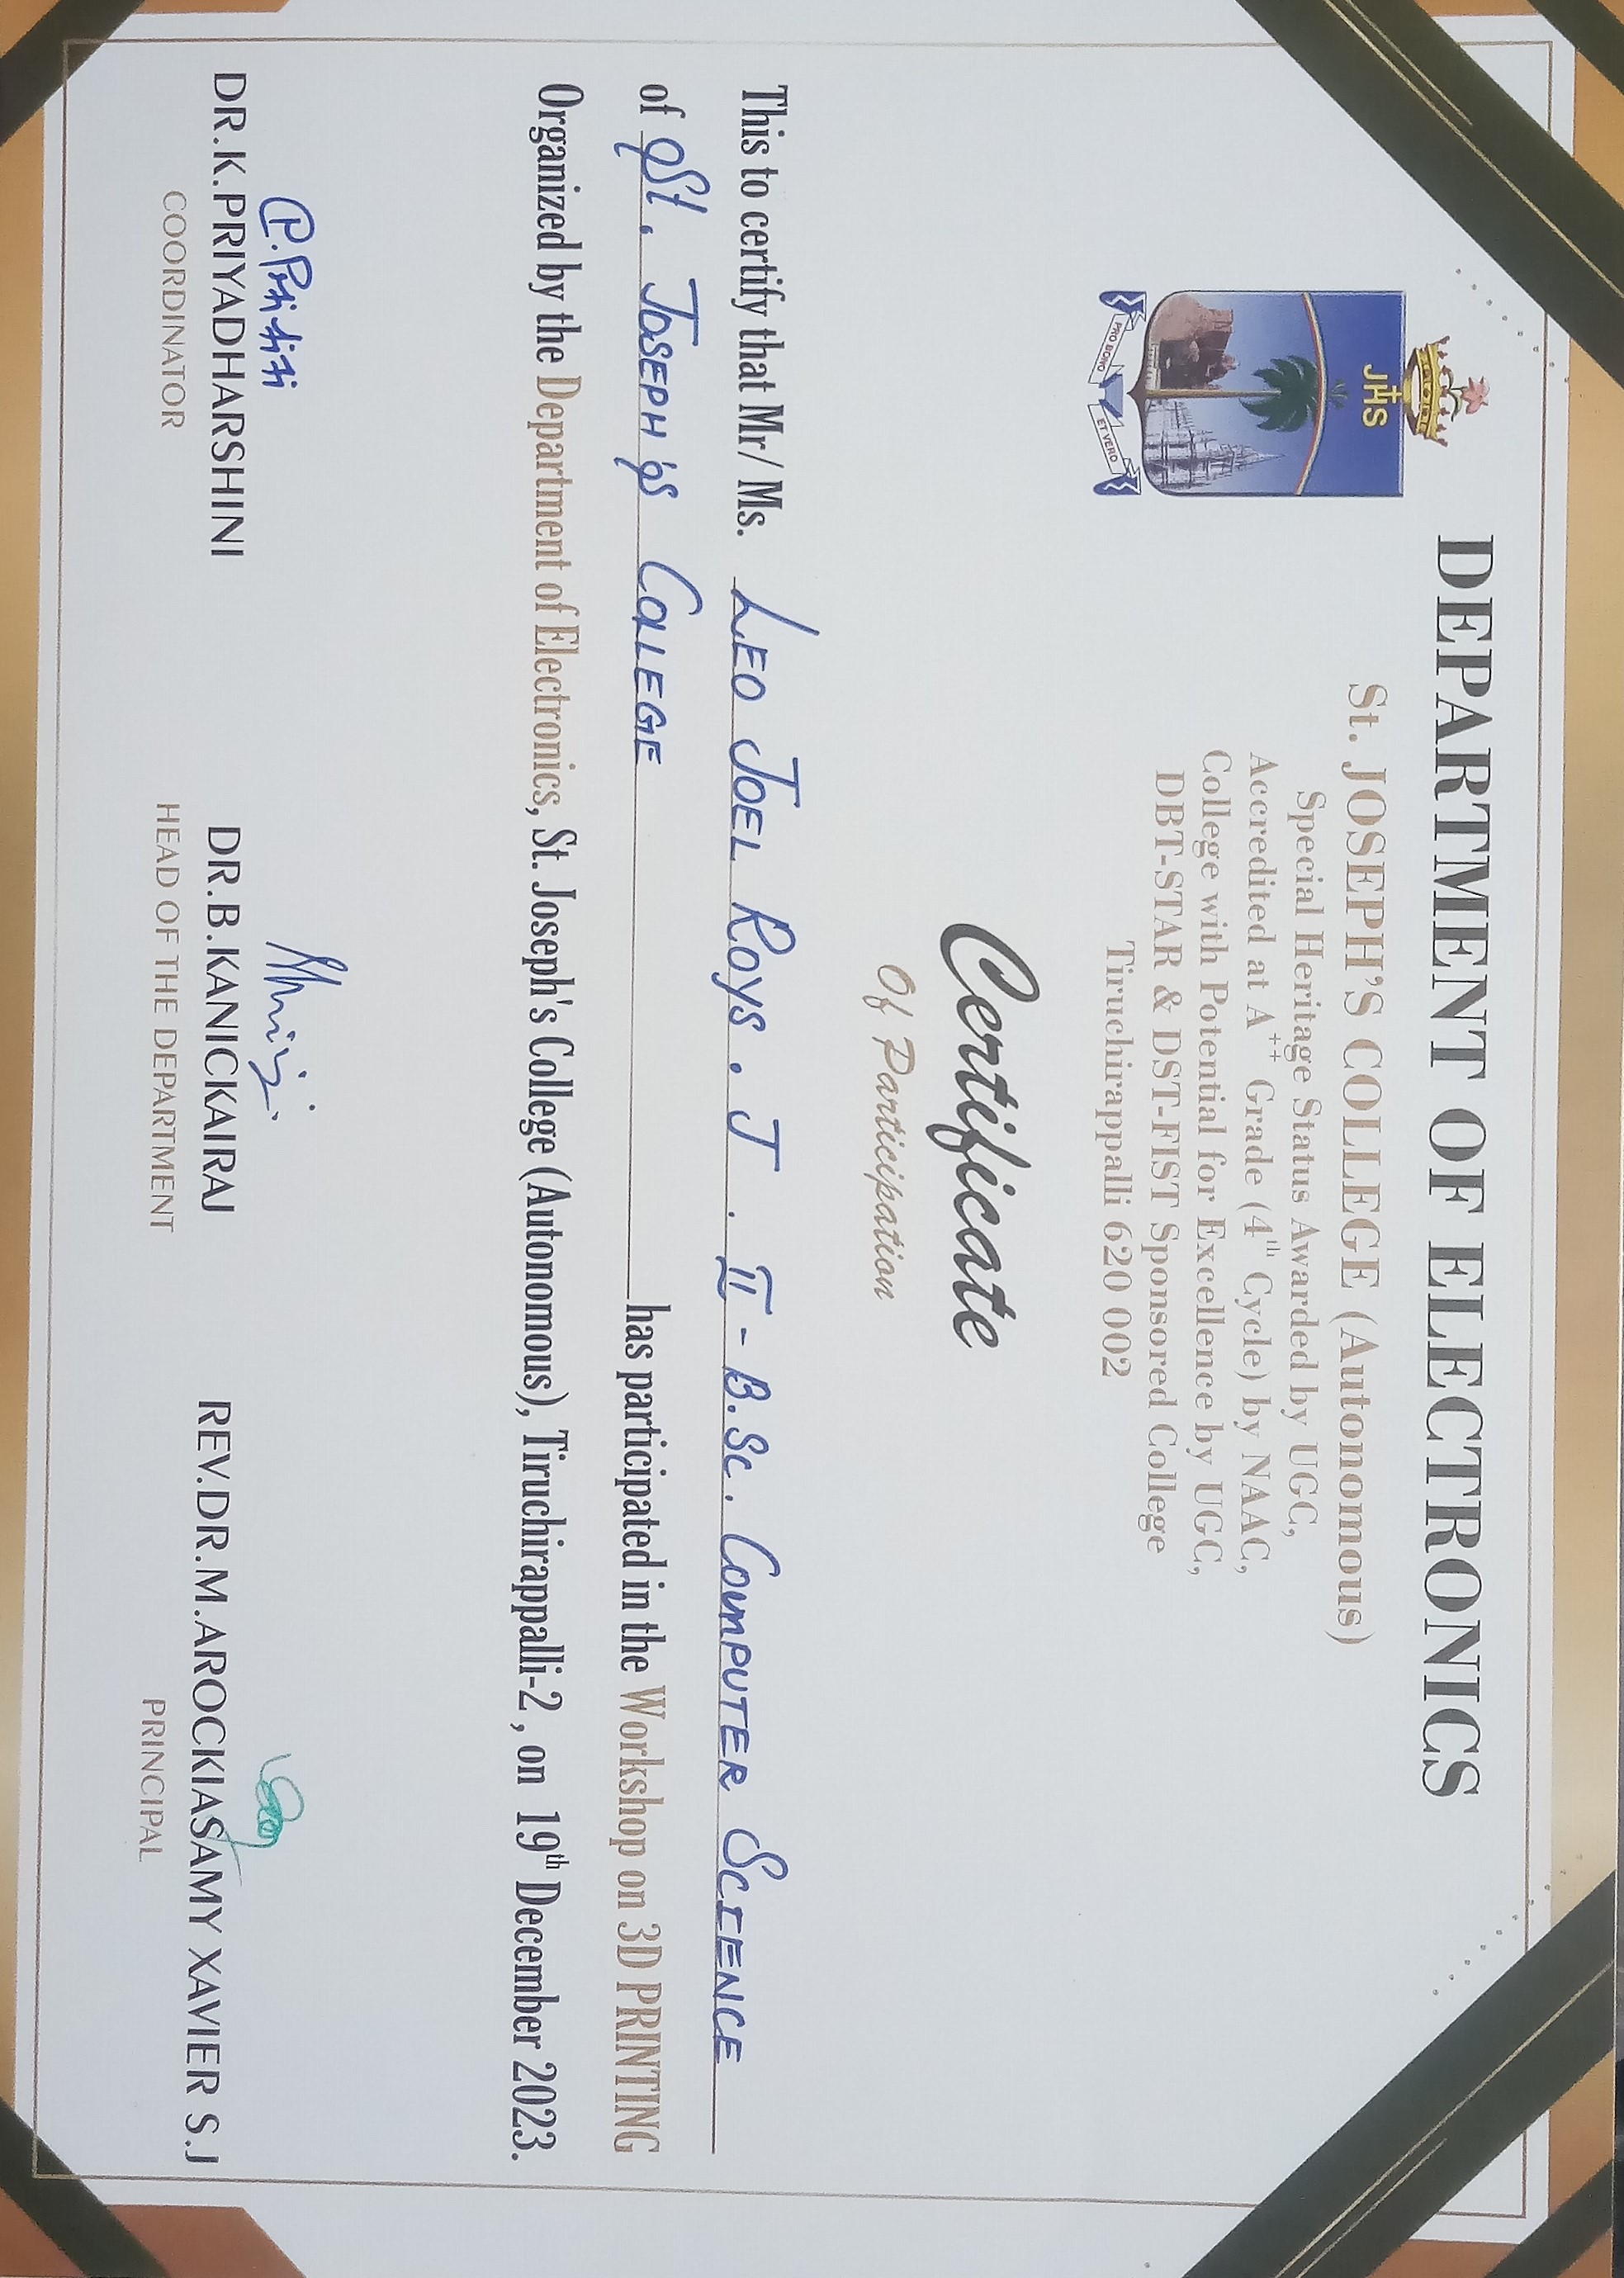 DEPARTMENT OF ELECTRONICS
St. JOSEPH'S COLLEGE (Autonomous)
Special Heritage Status Awarded by UGC,
Accredited at A++ Grade (4th Cycle) by NAAC,
College with Potential for Excellence by UGC,
DBT-STAR & DST-FIST Sponsored College
Tiruchirappalli 620 002
JHS
PRO BONO ET VERO
Certificate
Of Participation
This to certify that Mr/ Ms. LEO JOEL ROYS . J . II - B.Sc. COMPUTER SCIENCE
of St. JOSEPH'S COLLEGE has participated in the Workshop on 3D PRINTING
Organized by the Department of Electronics, St. Joseph's College (Autonomous), Tiruchirappalli-2 , on 19th December 2023.
DR.K.PRIYADHARSHINI DR.B.KANICKAIRAJ REV.DR.M.AROCKIASAMY XAVIER S.J
COORDINATOR HEAD OF THE DEPARTMENT PRINCIPAL